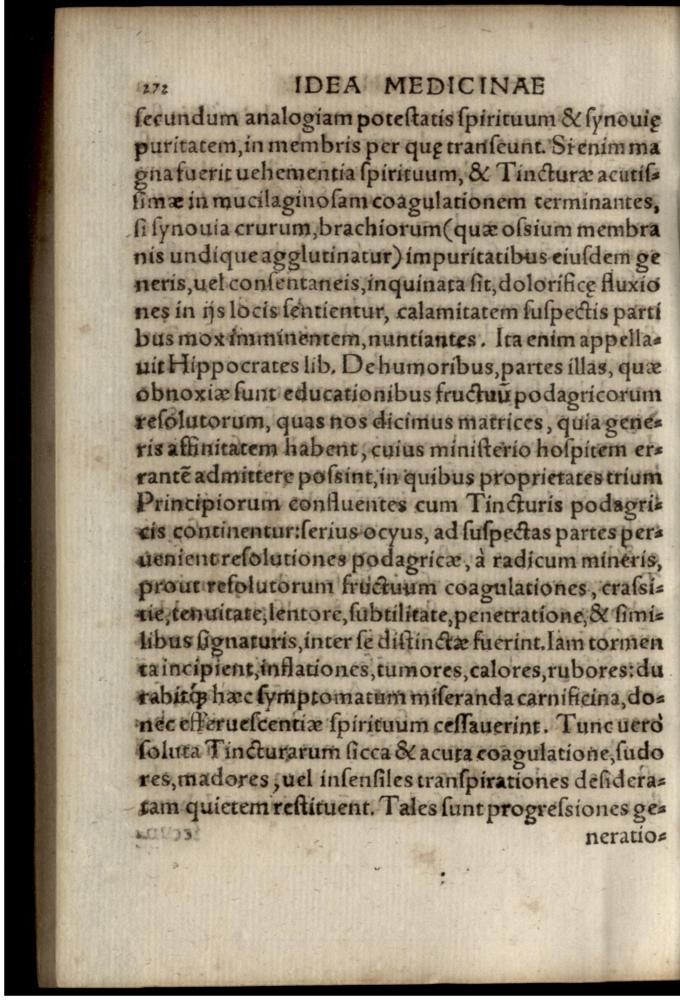 272 IDEA MEDICINAE
secundum analogiam potestatis spirituum & synouię
puritatem, in membris per quę transeunt. Si enim ma
gna fuerit uehementia spirituum, & Tincturæ acutis-
simæ in mucilaginosam coagulationem terminantes,
si synouia crurum, brachiorum (quæ ossium membra
nis undique agglutinatur) impuritatibus eiusdem ge
neris, uel consentaneis, inquinata sit, dolorificę fluxio
nes in ijs locis sentientur, calamitatem suspectis parti
bus mox imminentem, nuntiantes. Ita enim appella-
uit Hippocrates lib. De humoribus, partes illas, quæ
obnoxiæ sunt educationibus fructuū podagricorum
resolutorum, quas nos dicimus matrices, quia gene-
ris affinitatem habent, cuius ministerio hospitem er-
rantē admittere possint, in quibus proprietates trium
Principiorum confluentes cum Tincturis podagri-
cis continentur: serius ocyus, ad suspectas partes per-
uenient resolutiones podagricæ, à radicum mineris,
prout resolutorum fructuum coagulationes, crassi-
tie, tenuitate, lentore, subtilitate, penetratione, & simi-
libus signaturis, inter se distinctæ fuerint. Iam tormen
ta incipient, inflationes, tumores, calores, rubores: du
rabitq́; hæc symptomatum miseranda carnificina, do-
nec efferuescentiæ spirituum cessauerint. Tunc uerò
soluta Tincturarum sicca & acuta coagulatione, sudo
res, madores, uel insensiles transpirationes desidera-
tam quietem restituent. Tales sunt progressiones ge-
neratio-